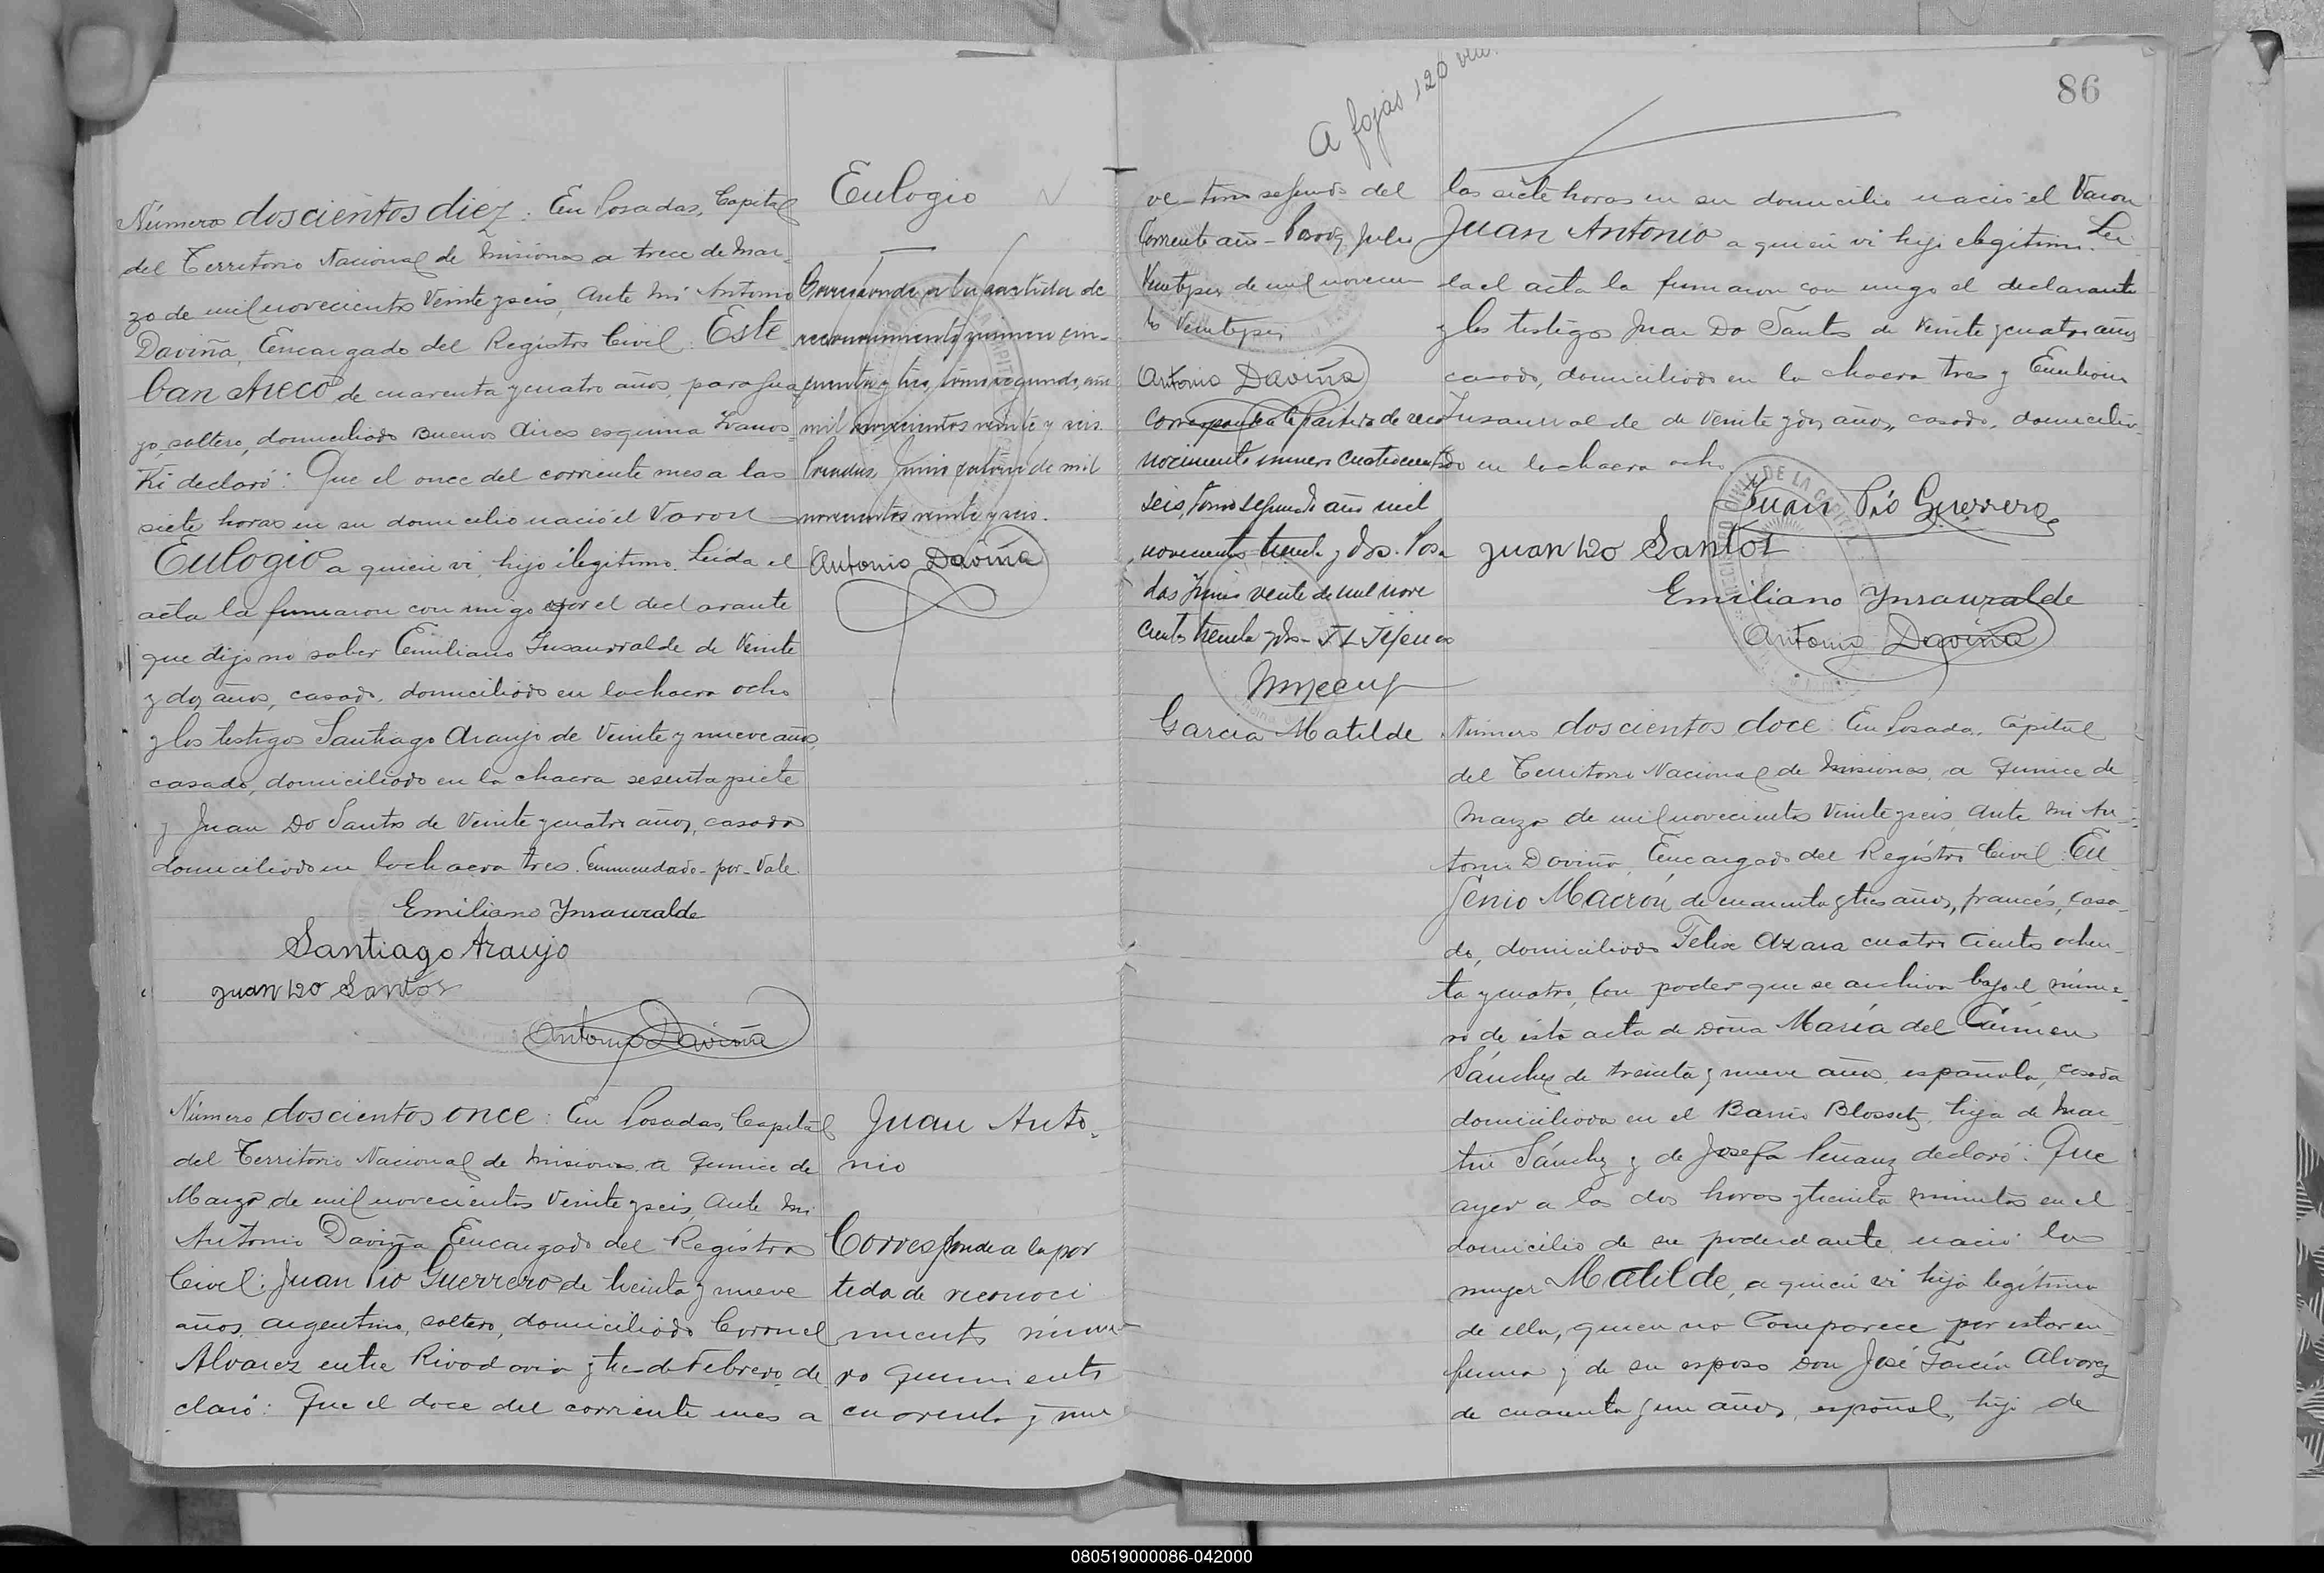 Número doscientos diez: En Posadas, Capital
del Territorio Nacional de Misiones a trece de Mar-
zo de mil novecientos Veinte y seis, Ante Mi Antonio
Daviña, Encargado del Registro Civil: Este
ban Areco de cuarenta y cuatro años, paragua
yo, soltero, domiciliado Buenos Aires esquina Ivanos-
ki declaró: Que el once del corriente mes a las
siete horas en su domicilio nació el Varon
Eulogio a quien vi, hijo ilegitimo. Leida el
acta la firmaron con migo por el declarante
que dijo no saber Emiliano Insaurralde de Veinte
y dos años, casado, domiciliado en la chacra ocho
y los testigos Santiago Araujo de Veinte y nueve años,
casado, domiciliado en la chacra sesenta y siete
y Juan Do Santos de Veinte y cuatro años, casado
domiciliado en la chacra tres. Enmendado-por-Vale
Emiliano Ynsauralde
Santiago Araujo
Juan Do Santos
Antonio Daviña
Eulogio
Corresponde a la partida de
reconocimiento número cin-
cuenta y tres, tomo segundo, año
mil novecientos veinte y seis.
Posadas, Junio catorce de mil
novecientos veinte y seis.
Antonio Daviña
Número doscientos once: En Posadas, Capital
del Territorio Nacional de Misiones a Quince de
Marzo de mil novecientos Veinte y seis, Ante Mi
Antonio Daviña Encargado del Registro
Civil: Juan Pio Guerrero de treinta y nueve
años, argentino, soltero, domiciliado Coronel
Alvarez entre Rivadavia y tres de Febrero, de
claró: Que el doce del corriente mes a
Juan Anto-
nio
Corresponde a la par
tida de reconoci
miento núme
ro quinientos
cuarenta y nue
A fojas 120 vta.
86
ve-tomo segundo del
Corriente año-Posadas, Julio
Veinte y seis de mil novecien
tos Veinte y seis
Antonio Daviña
Corresponde a la Partida de reco
nocimiento número Cuatrocientos
seis, tomo segundo año mil
novecientos treinta y dos. Posa
das Junio veinte de mil nove
cientos treinta y dos-
las siete horas en su domicilio nació el Varon
Juan Antonio a quien vi hijo ilegitimo. Lei
da el acta la firmaron con migo el declarante
y los testigos Juan Do Santos de Veinte y cuatro años
casado, domiciliado en la chacra tres y Emiliano
Insaurralde de Veinte y dos años, casado, domicilia-
do en la chacra ocho.
Juan Pió Guerrero
Juan Do Santos
Emiliano Ynsauralde
Antonio Daviña
Garcia Matilde
Número doscientos doce: En Posadas, Capital
del Territorio Nacional de Misiones, a Quince de
Marzo de mil novecientos Veinte y seis, Ante Mi An-
tonio Daviña, Encargado del Registro Civil: Eu
genio Macrón de cuarenta y tres años, francés, casa-
do, domiciliado Felix Azara cuatro cientos ochen-
ta y cuatro, con poder que se archiva bajo el núme-
ro de ésta acta de doña María del Cármen
Sánchez de treinta y nueve años, española, casada
domiciliada en el Barrio Blosset, hija de Mar-
tin Sánchez y de Josefa declaró: Que
ayer a las dos horas y treinta minutos en el
domicilio de su poderdante nació la
mujer Matilde, a quien vi hija legítima
de ella, quien no Comparece por estar en-
ferma y de su esposo Don José García Alvarez
de cuarenta y un años, español, hijo de
080519000086-042000